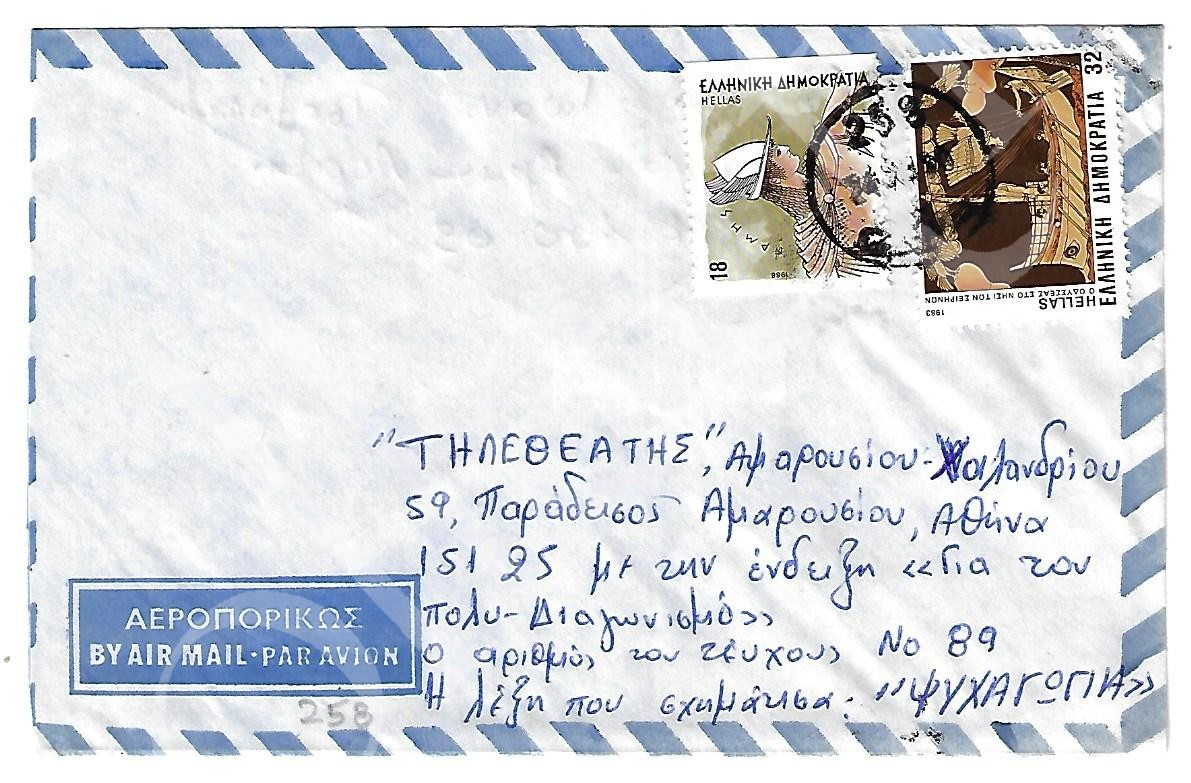 ΕΛΛΗΝΙΚΗ ΔΗΜΟΚΡΑΤΙΑ
HELLAS
18
1986
ΕΛΛΗΝΙΚΗ ΔΗΜΟΚΡΑΤΙΑ 32
HELLAS
Ο ΟΔΥΣΣΕΑΣ ΣΤΟ ΝΗΣΙ ΤΩΝ ΣΕΙΡΗΝΩΝ
1983
"ΤΗΛΕΘΕΑΤΗΣ", Αμαρουσίου-Χαλανδρίου
59, Παράδεισος Αμαρουσίου, Αθήνα
151 25 με την ένδειξη «Για τον
πολυ-Διαγωνισμό»
Ο αριθμός του τεύχους Νο 89
Η λέξη που σχημάτισα: «ΨΥΧΑΓΩΓΙΑ»
ΑΕΡΟΠΟΡΙΚΩΣ
BY AIR MAIL·PAR AVION
258